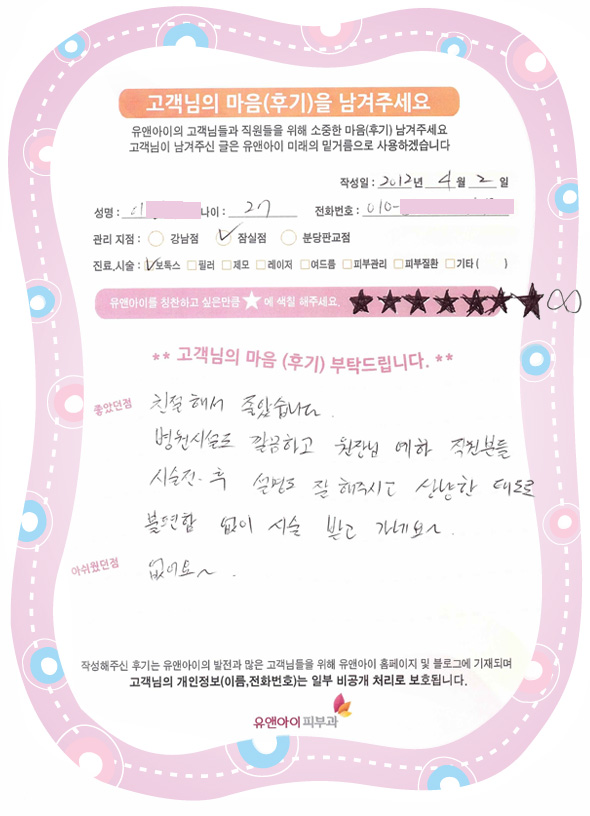 고객님의 마음(후기)을 남겨주세요
유앤아이의 고객님들과 직원들을 위해 소중한 마음(후기) 남겨주세요
고객님이 남겨주신 글은 유앤아이 미래의 밑거름으로 사용하겠습니다
작성일 : 2012년 4 월 2 일
성명 : 이 나이 : 27 전화번호 : 010-
관리 지점 : 강남점 잠실점 분당판교점
진료,시술 : 보톡스 필러 제모 레이저 여드름 피부관리 피부질환 기타 ( )
유앤아이를 칭찬하고 싶은만큼 ★ 에 색칠 해주세요. ★★★★★★★∞
** 고객님의 마음 (후기) 부탁드립니다. **
좋았던점 친절해서 좋았습니다.
병원시설도 깔끔하고 원장님 예하 직원분들
시술전·후 설명도 잘 해주시고 상냥한 태도로
불편함 없이 시술 받고 가네요~.
아쉬웠던점 없어요~.
작성해주신 후기는 유앤아이의 발전과 많은 고객님들을 위해 유앤아이 홈페이지 및 블로그에 기재되며
고객님의 개인정보(이름,전화번호)는 일부 비공개 처리로 보호됩니다.
유앤아이피부과